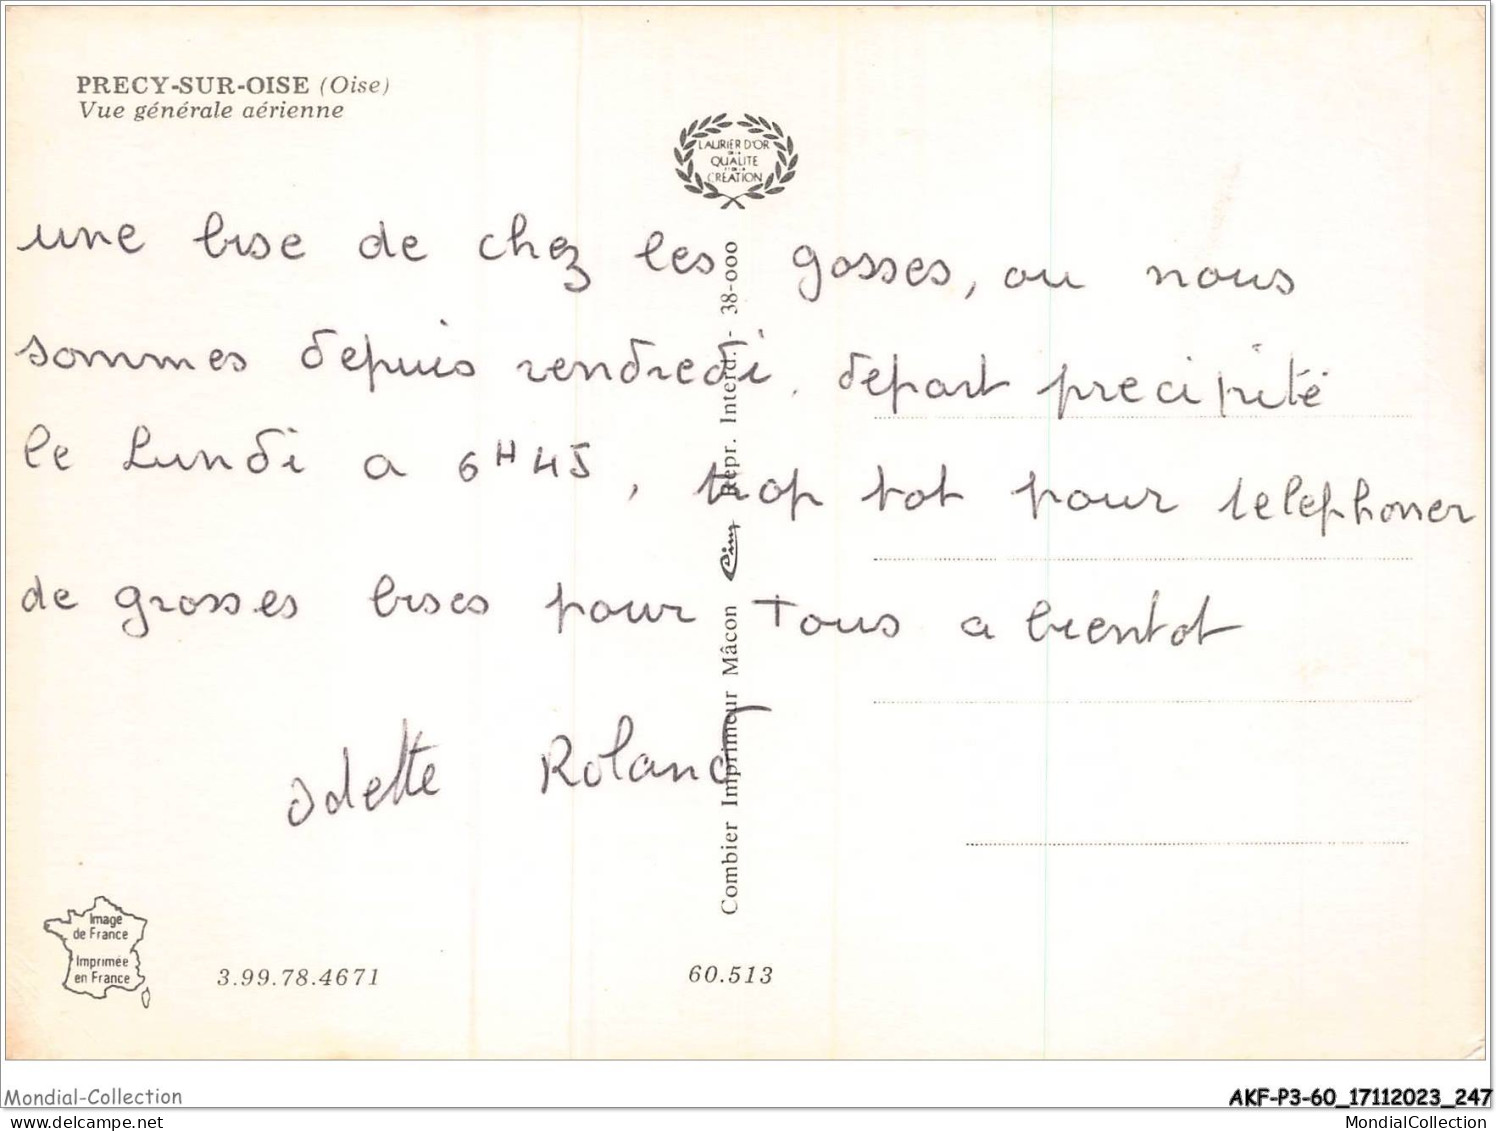 PRECY-SUR-OISE (Oise)
Vue générale aérienne
LAURIER D'OR
DE LA
QUALITE
ET DE LA
CRÉATION
une bise de chez les gosses, ou nous
sommes depuis vendredi, depart precipité
le Lundi a 6H45, trop tot pour telephoner
de grosses bises pour Tous a bientot
Odette Roland
Combier Imprimeur Mâcon Cim Repr. Interd. - 38-000
Image
de France
Imprimée
en France
3.99.78.4671
60.513
Mondial-Collection
AKF-P3-60_17112023_247
delcampe.net
MondialCollection